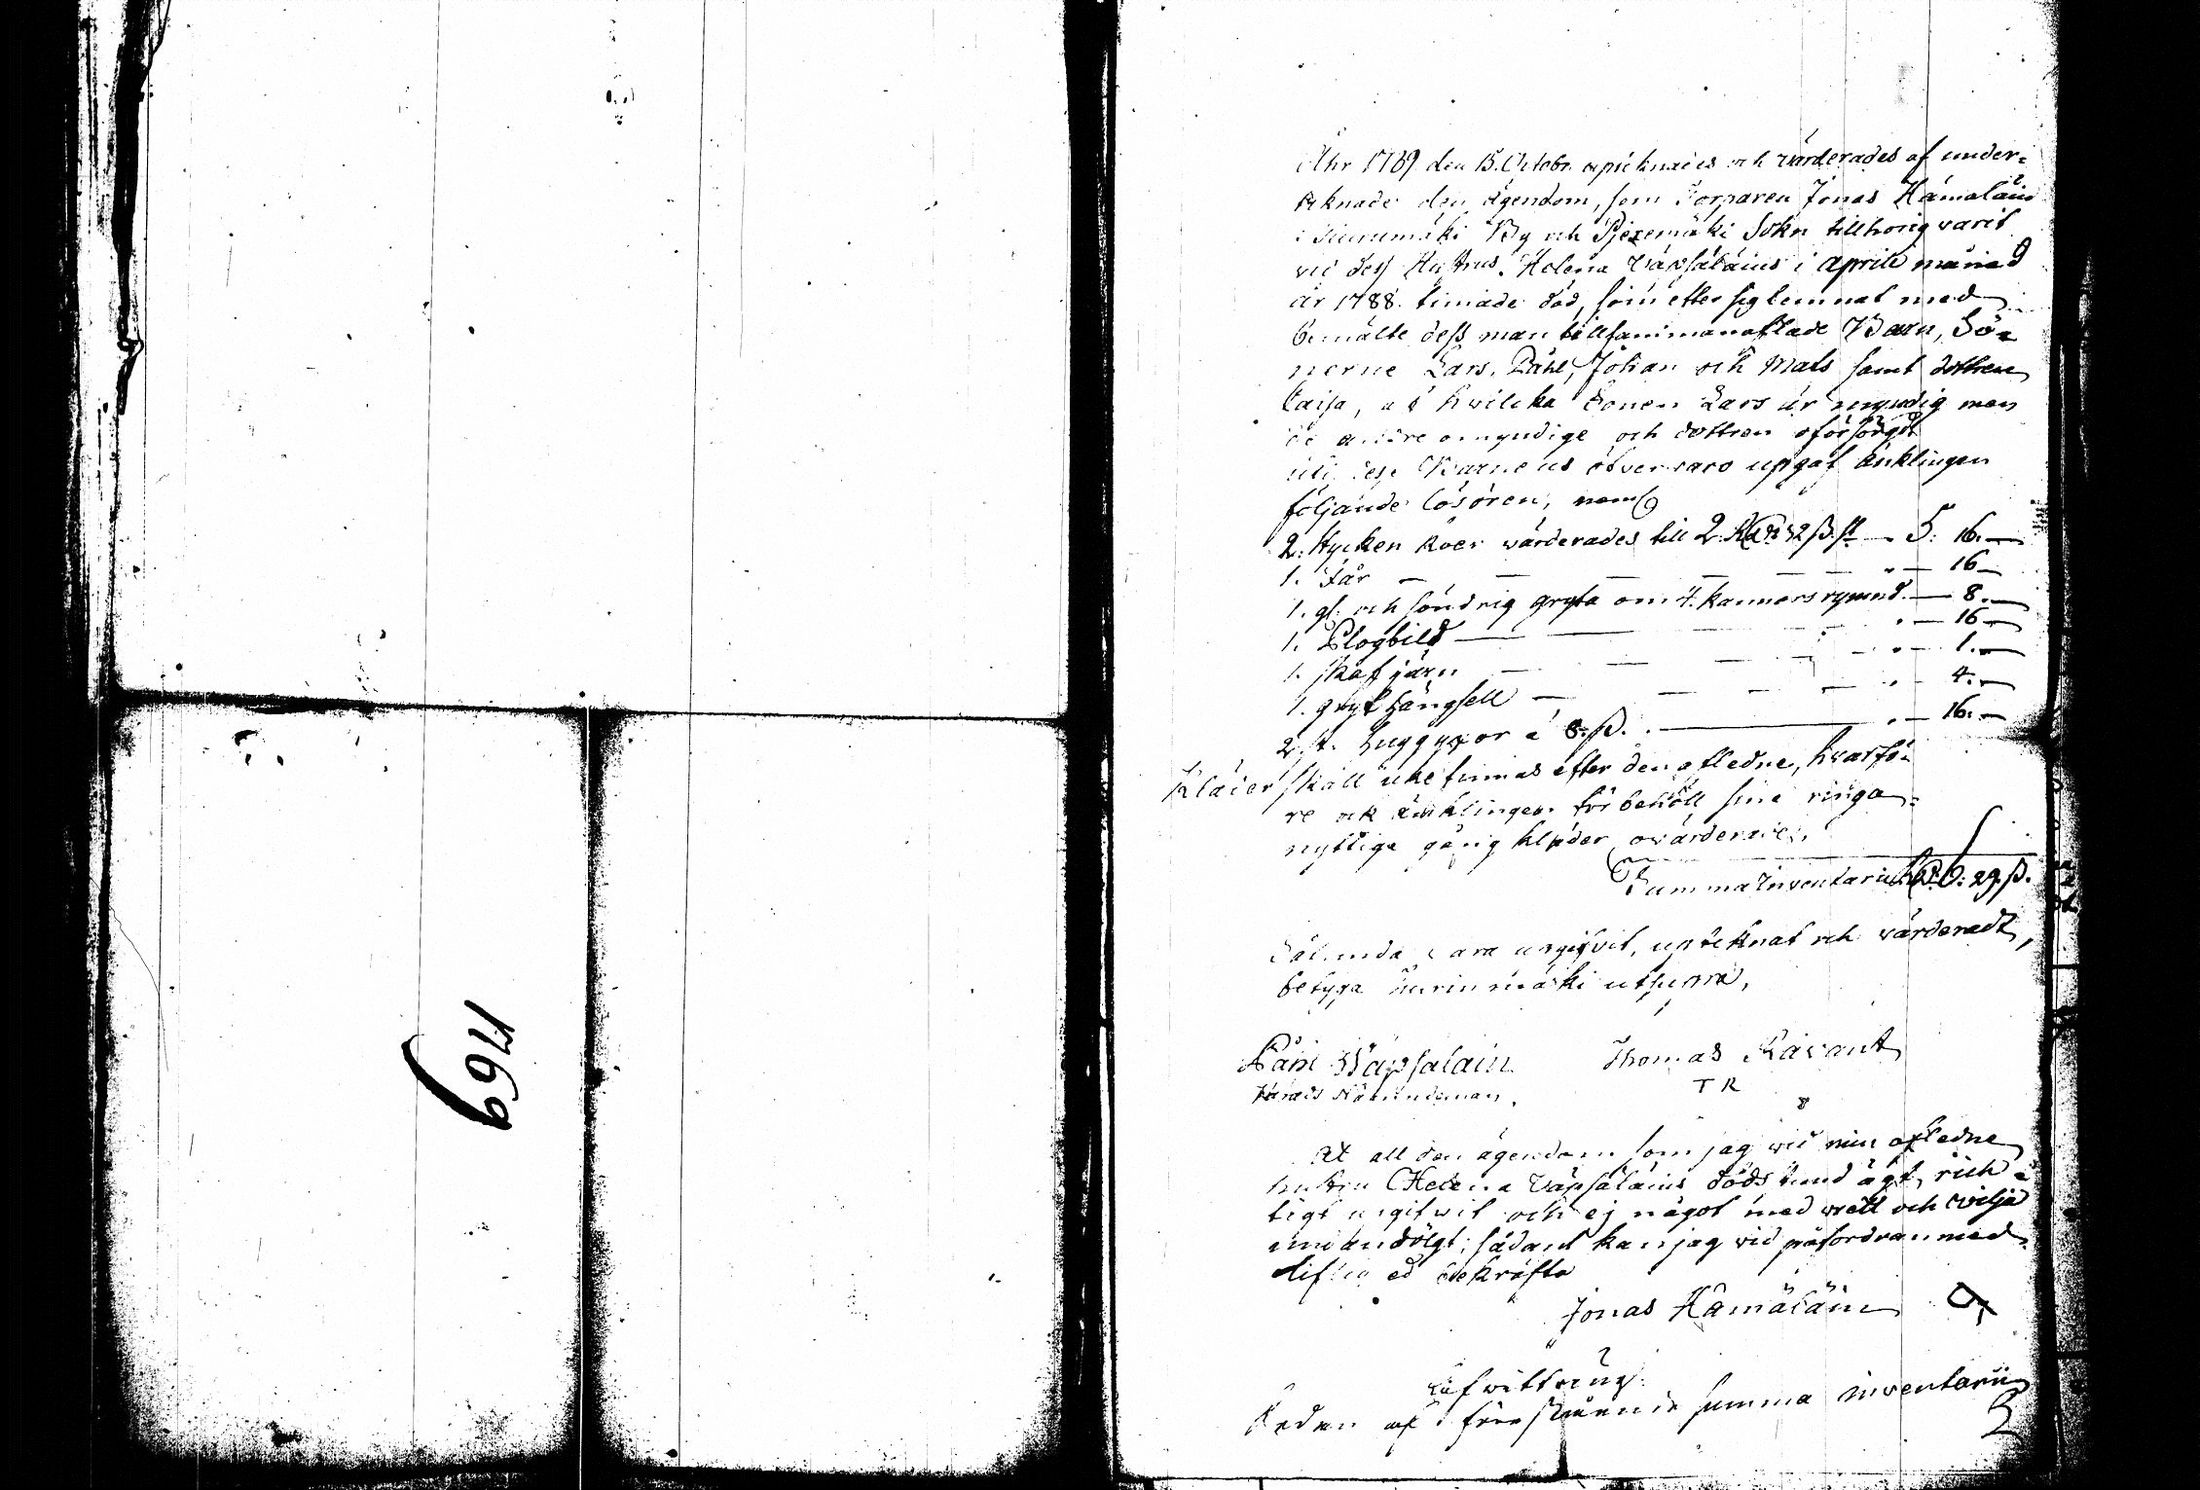 169
Åhr 1789 den 15. Octobr. uptecknades och värderades af under-
teknade den ägendom, som Torparen Jonas Hämäläin
i By och Pjexemäki Sokn tillhörig varit
vid dess Hustrus Helena Väpsäläins i April månad
år 1788. timade död, som efter sig lemnat med
bemälte dess man tillsammanaflade Barn, Sö-
nerne Lars, Påhl, Johan och Mats samt dottren
Caisa, af hvilcka Sonen Lars är myndig men
de andre omyndige och dottren oförsörgd
uti dess Barnens öfvervaro upgaf Enklingen
följande lösören, neml.
2. stycken Koer värderades till 2 Rd 32 ß st — 5. 16. —
1. Får — — — — — — 16 —
1. gl. och söndrig gryta om 4. kannors rymnd. — 8. —
1. Plogbild — — — — 16 —
1. skafjärn — — — — 1. —
1. grythängsell — — — — 4. —
2 st. huggyxor á 8. ß. — — 16. —
Kläder skall icke finnas efter den afledne, hvarfö-
re ock änklingen förbehöll sine ringa
nyttige gång kläder ovärderade.
Summa Inventarii Rd 6: 29 ß.
Sålunda vara upgifvit, uptecknat och värderadt,
betyga ut supra,
Påhl Wäpsäläin Thomas Kävant
Härads Nämndeman. T R
At all den ägendom som jag vid min afledne
hustru Helena Väpsäläins dödstund ägt, rich-
tigt upgifvit och ej något med vett och vilja
undandölgt; sådant kan jag vid påfordran med
liflig ed bekräfta
Jonas Hämäläin
Afvittring.
Sedan af förestående summa inventarii